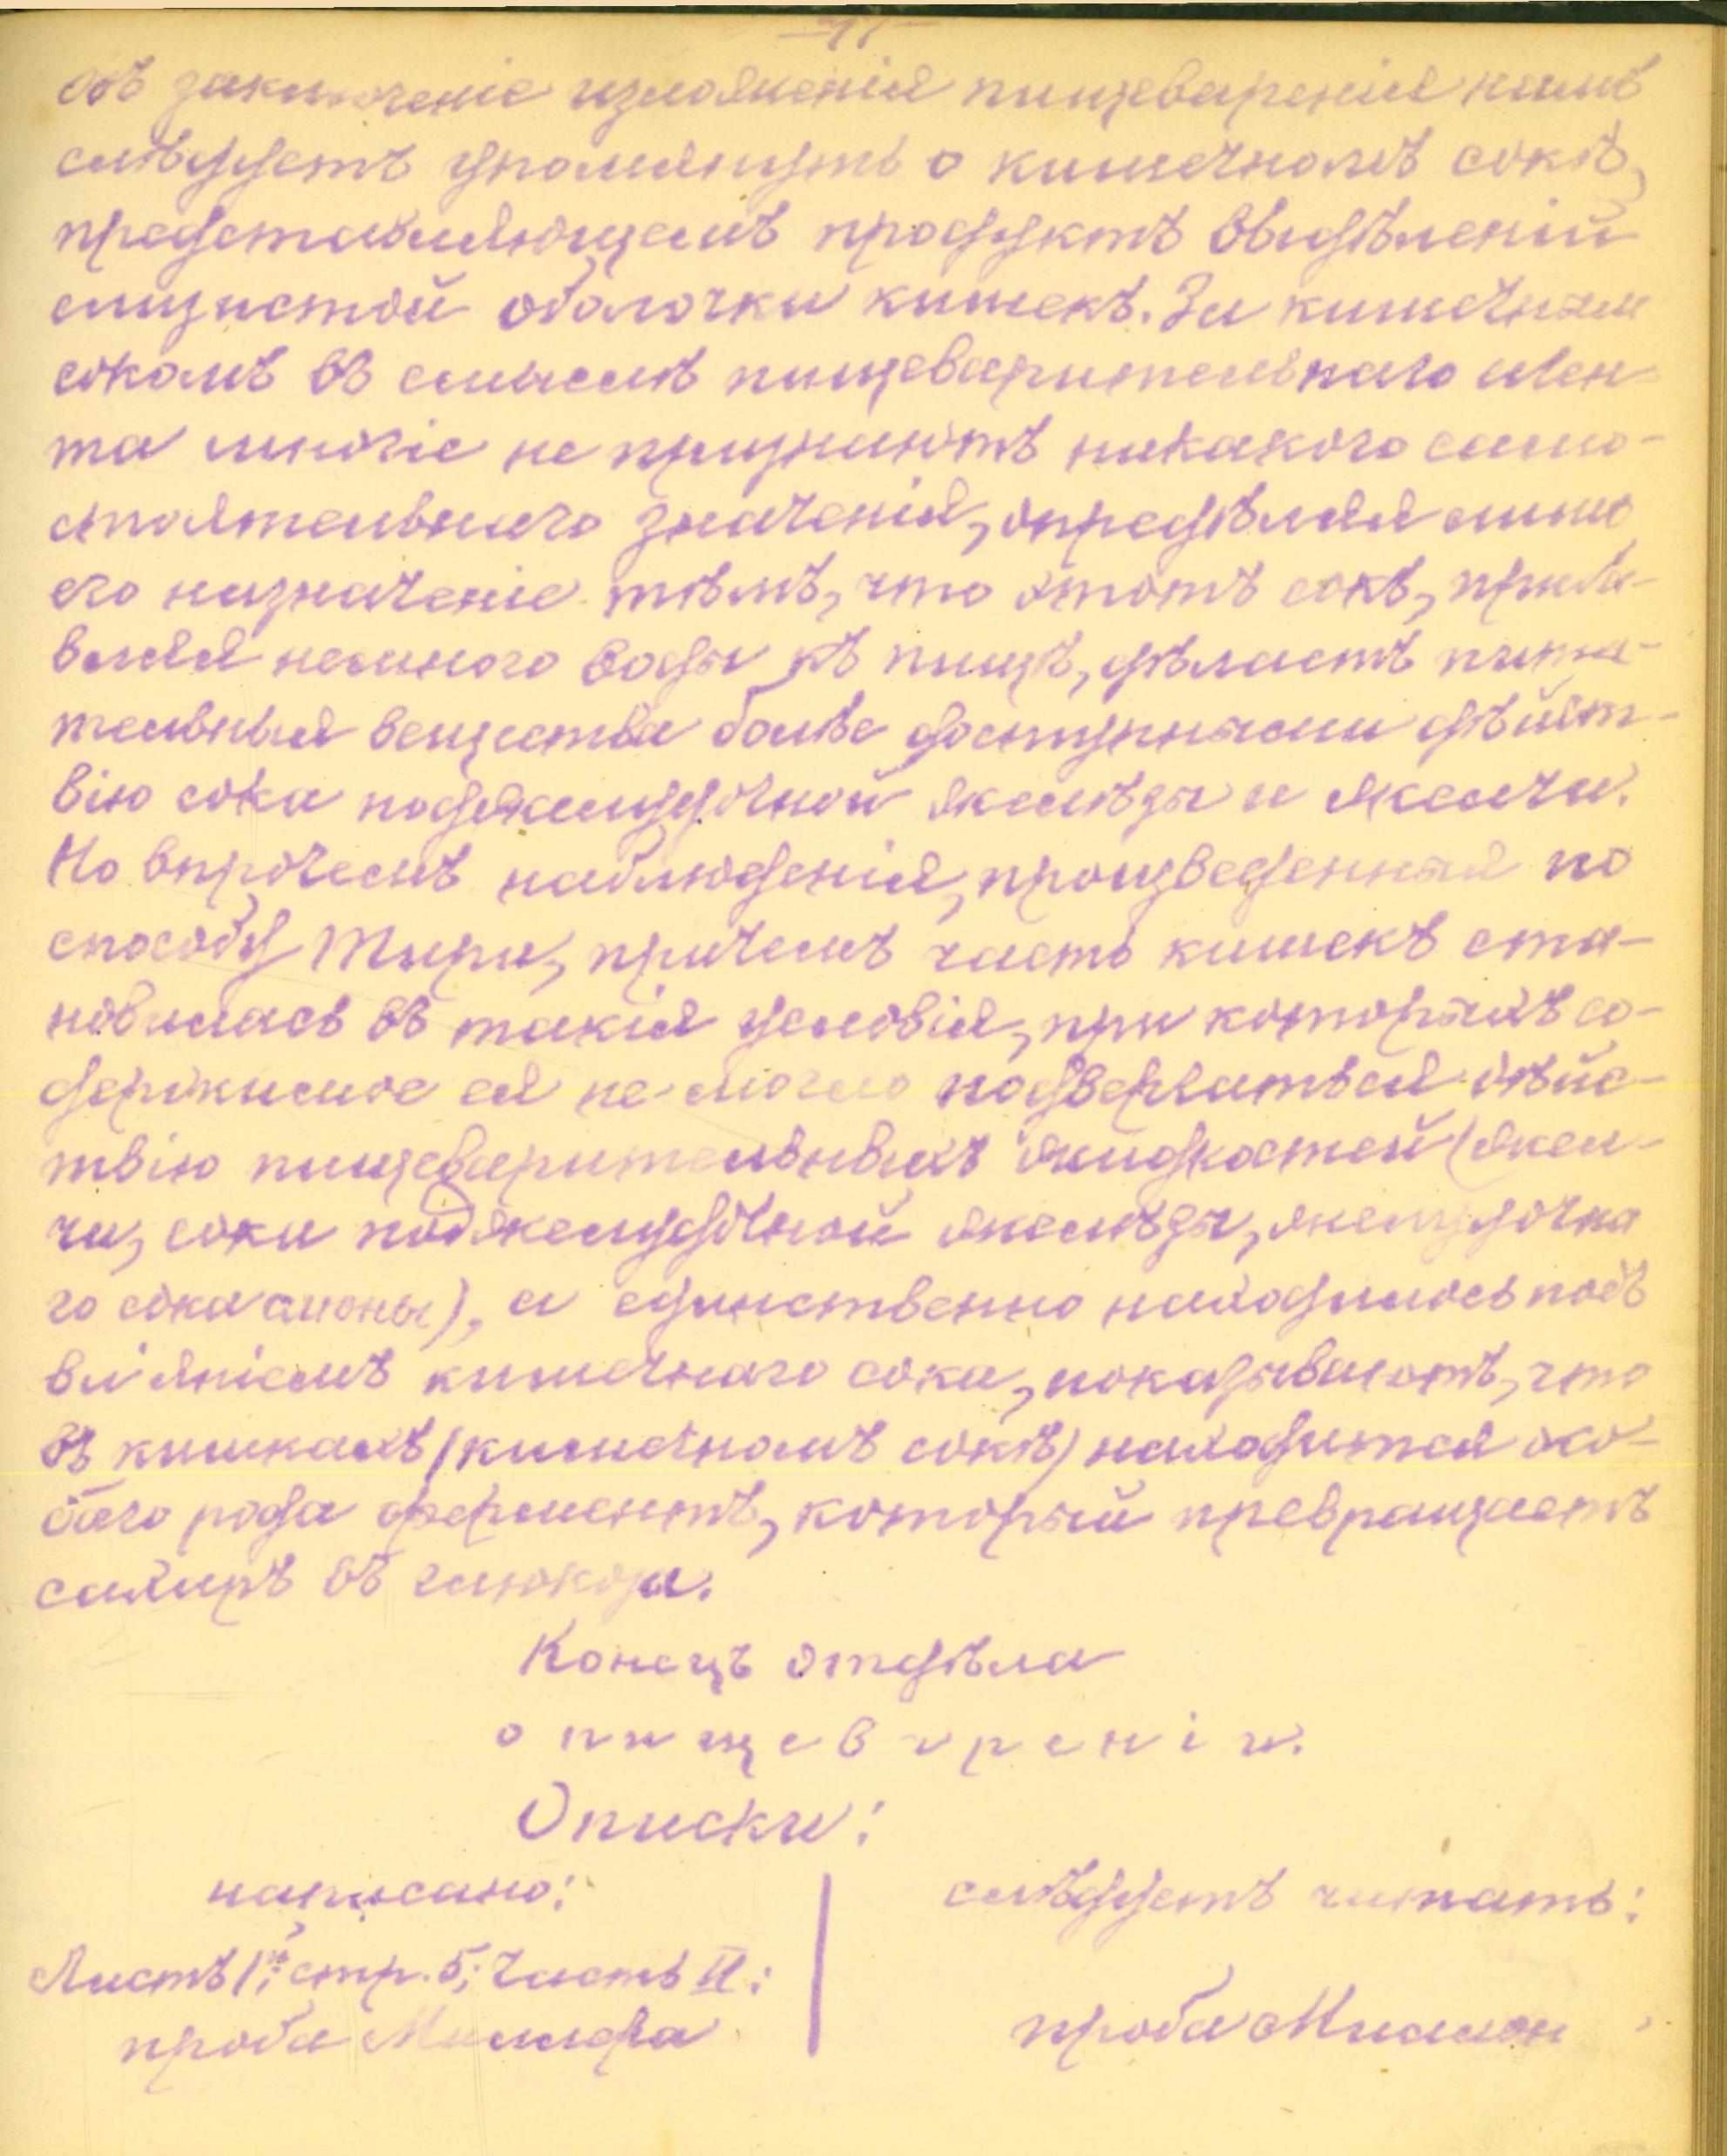 Въ заключеніе изложенія пищеваренія намъ
слѣдуетъ упомянуть о кишечномъ сокѣ,
представляющемъ продуктъ выдѣленій
слизистой оболочки кишекъ. За кишечным
сокомъ въ смыслѣ пищеварительнаго аген-
та многіе не признаютъ никакого само-
стоятельнаго значенія, опредѣляя лишь
его назначеніе тѣмъ, что этотъ сокъ, приба-
вляя немного воды къ пищѣ, дѣлаетъ пита-
тельныя вещества болѣе доступными дѣйст-
вію сока поджелудочной желѣзы и желчи.
Но впрочемъ наблюденія, произведенныя по
способу Тири, причемъ часть кишекъ ста-
новилась въ такія условія, при которыхъ со-
держимое ея не могло подвергаться дѣйс-
твію пищеварительныхъ жидкостей (жел-
чи, соки поджелудочной желѣзы, желудочна
го сока слюны), а единственно находилось подъ
вліяніемъ кишечнаго сока, показываютъ, что
въ кишкахъ (кишечномъ сокѣ) находится осо-
баго рода ферментъ, который превращаетъ
сахаръ въ глюкозу.
Конецъ отдѣла
о пищевареніи.
Описки:
написано:
слѣдуетъ читать:
Листъ 1й; стр. 5; Часть II:
проба Миллера
проба Миллон